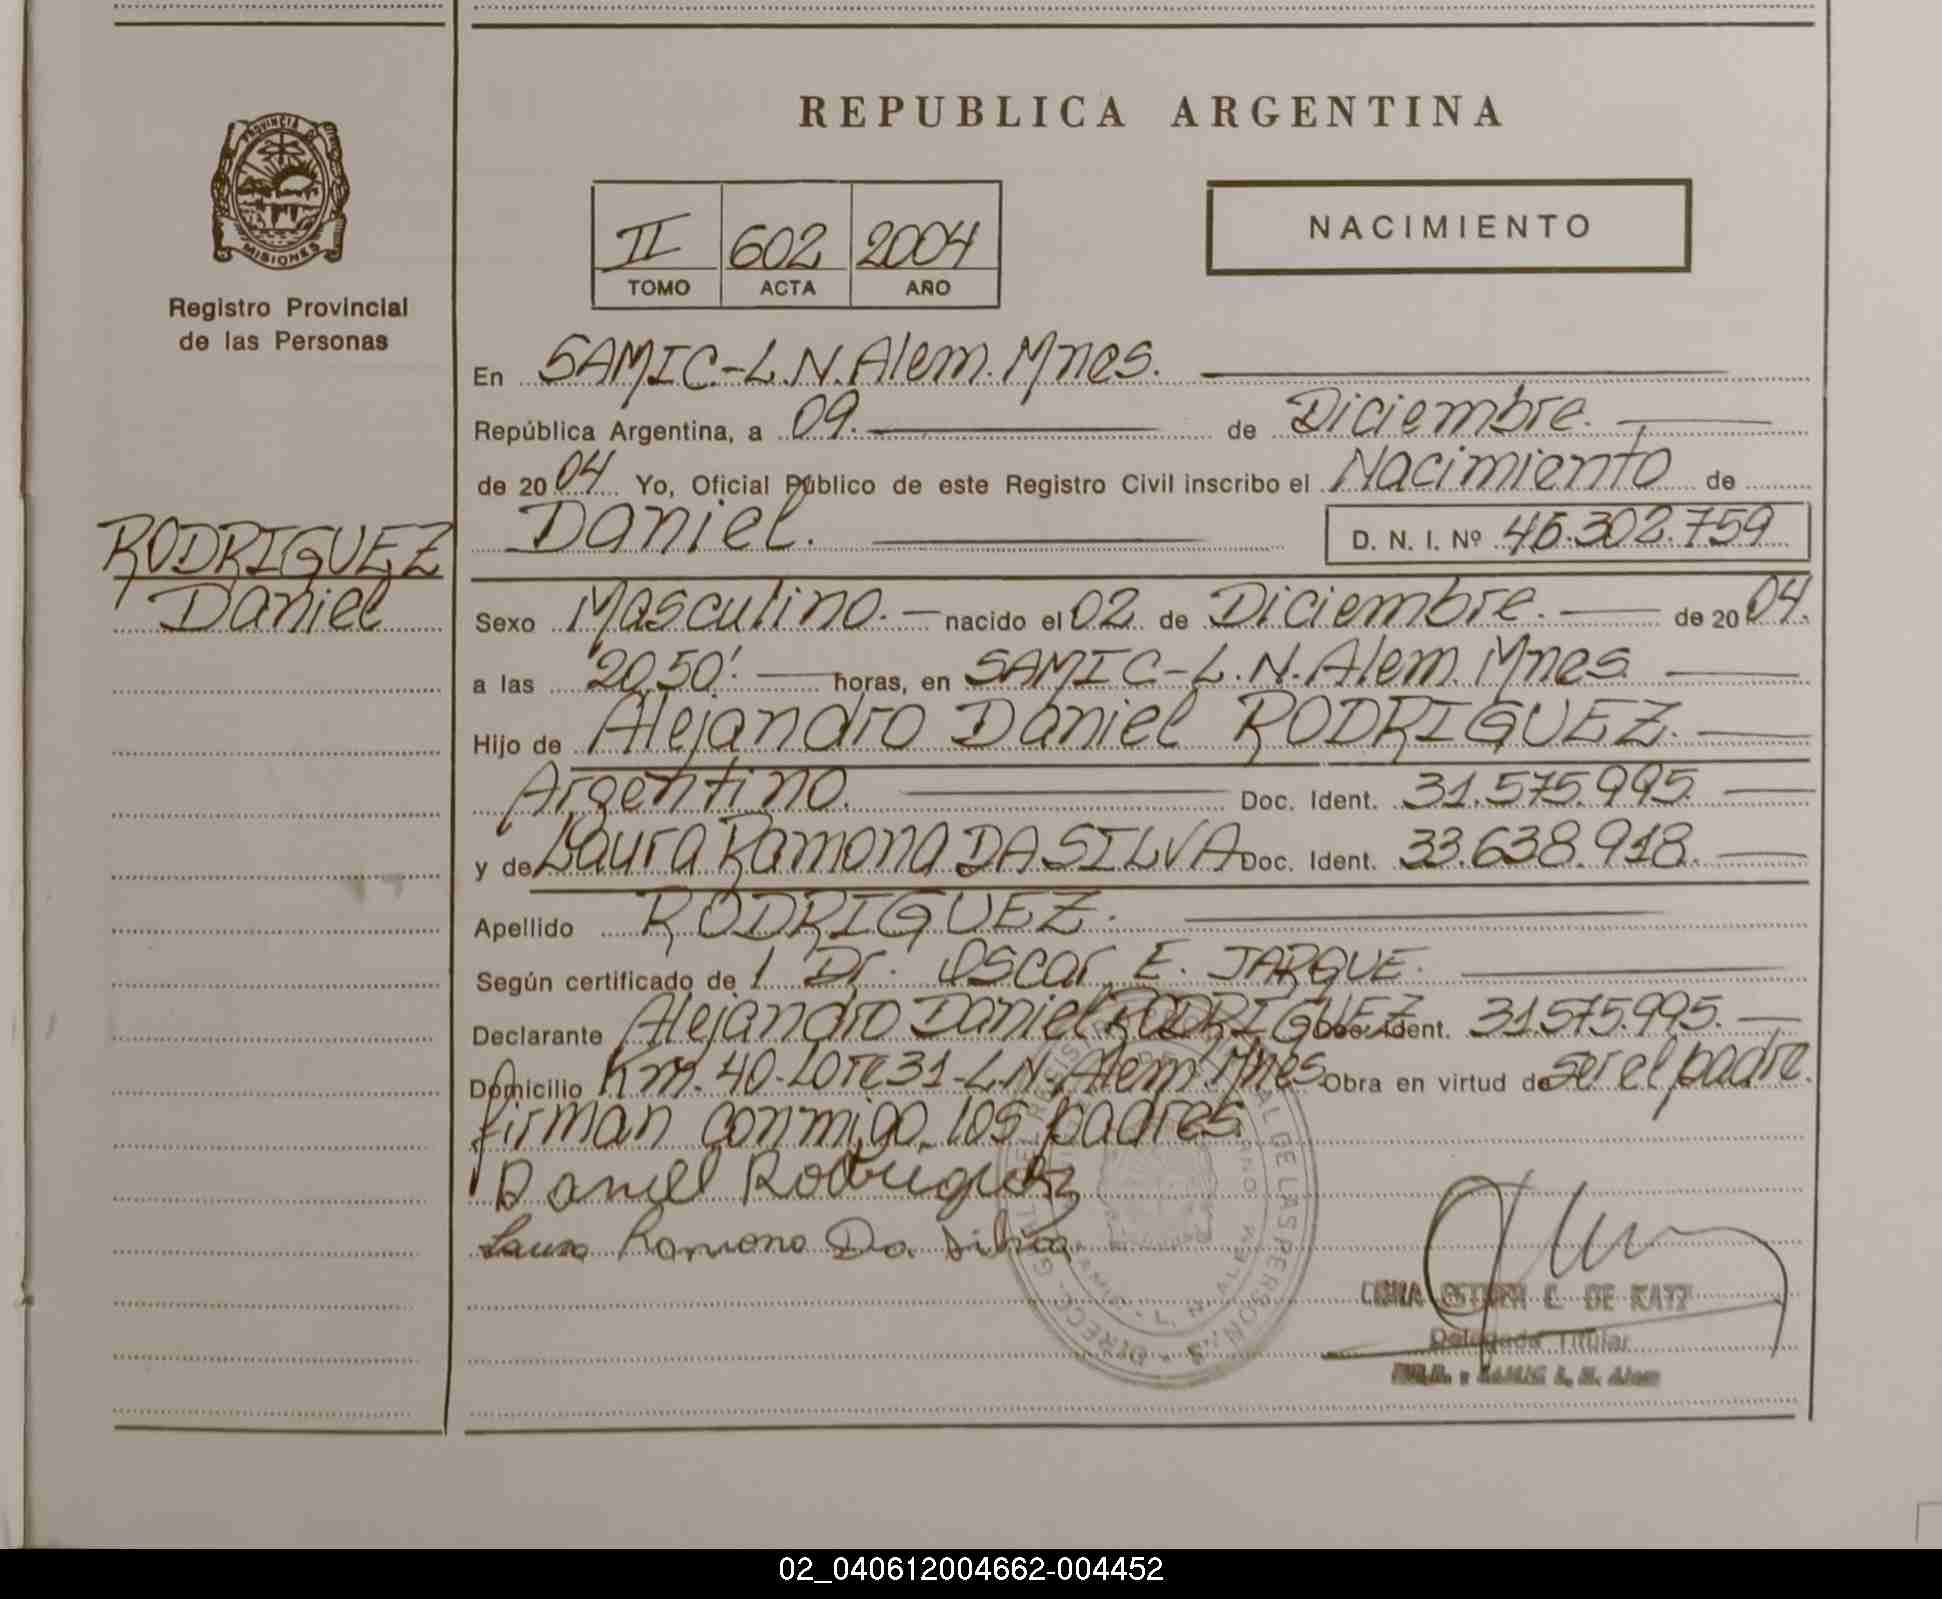 REPUBLICA ARGENTINA
PROVINCIA DE
MISIONES
Registro Provincial
de las Personas
II 602 2004
TOMO ACTA AÑO
NACIMIENTO
En SAMIC-L.N.Alem.Mnes.
República Argentina, a 09. de Diciembre.
de 2004 Yo, Oficial Público de este Registro Civil inscribo el Nacimiento de
Daniel. D. N. I. Nº 46.302.759
RODRIGUEZ
Daniel
Sexo Masculino. nacido el 02 de Diciembre. de 2004.
a las 20,50'. horas, en SAMIC-L.N.Alem.Mnes.
Hijo de Alejandro Daniel RODRIGUEZ.
Argentino. Doc. Ident. 31.575.995
y de Laura Ramona DA SILVA Doc. Ident. 33.638.918.
Apellido RODRIGUEZ.
Según certificado de 1 Dr. Oscar E. JARQUE.
Declarante Alejandro Daniel RODRIGUEZ Doc. Ident. 31.575.995.
Domicilio Km. 40-Lote 31-L.N.Alem.Mnes. Obra en virtud de ser el padre.
firman conmigo los padres.
Daniel Rodriguez
Laura Ramona Da Silva
DE KATZ
Delegada Titular
SAMIC L. N. Alem
02_040612004662-004452